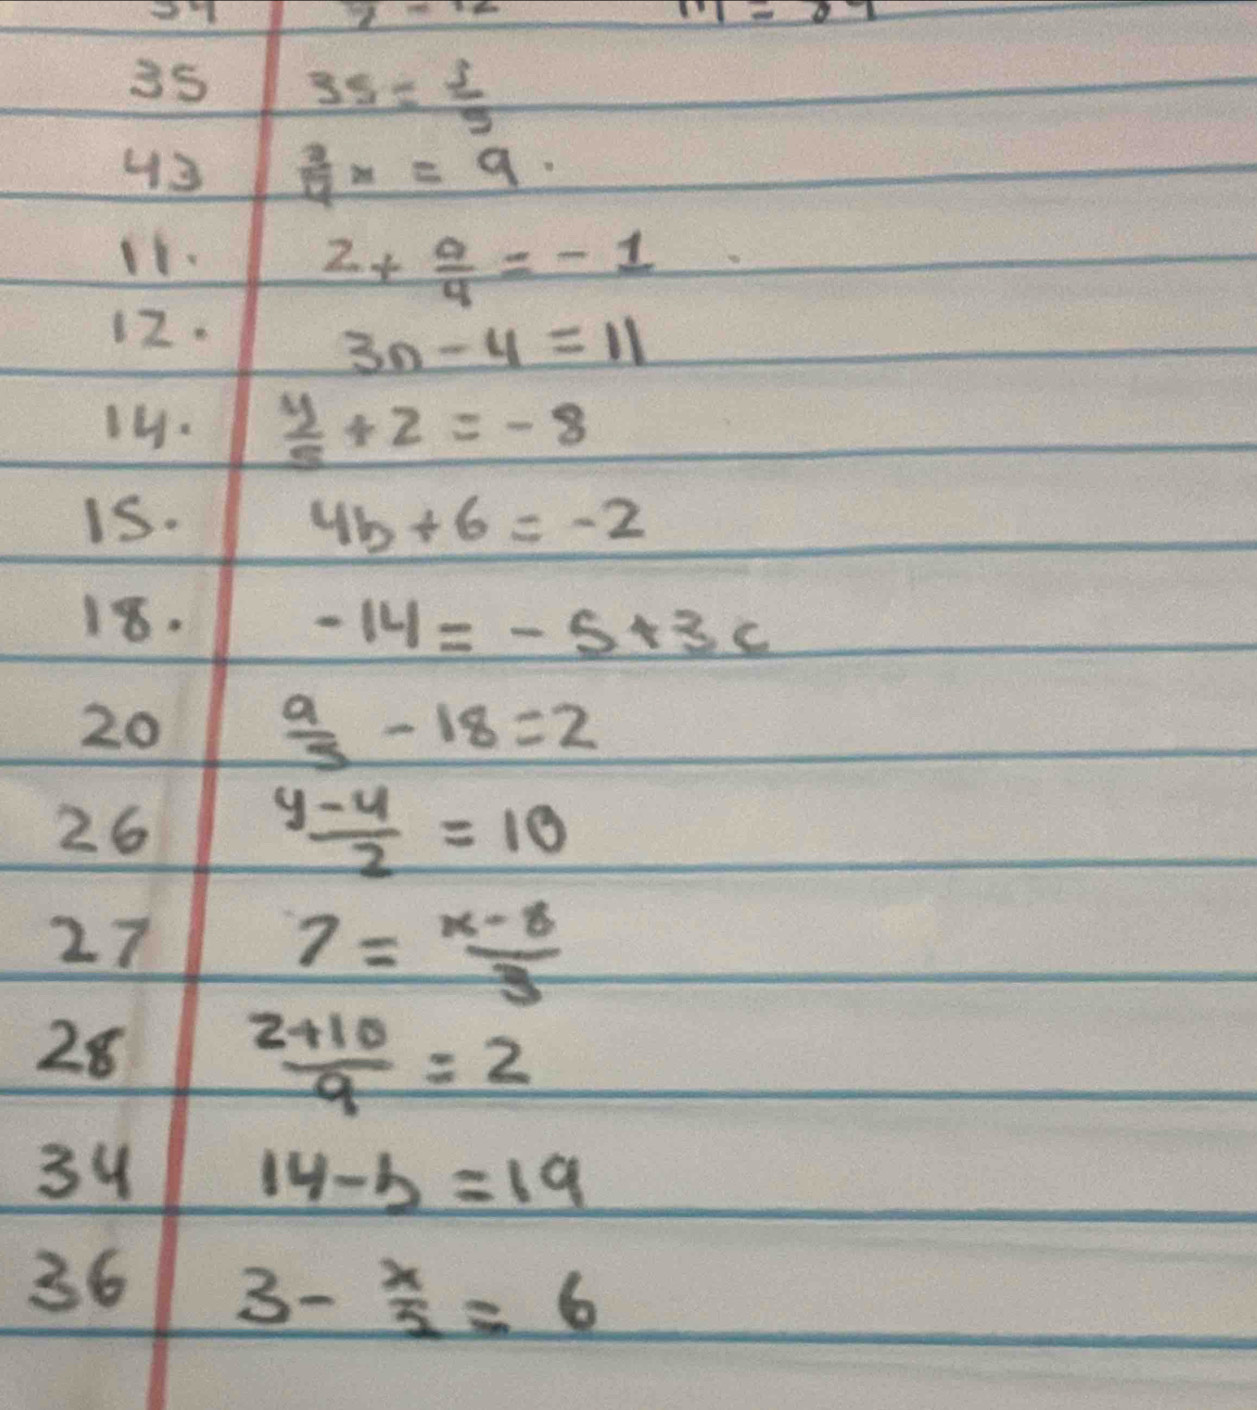 35 35 =
43 x = 9.
11. 2 + a/4 = - 1
12. 3n - 4 = 11
14. y/5 + 2 = - 8
15. 4b + 6 = -2
18. -14 = - 5 + 3c
20 a/3 - 18 = 2
26 y-4/2 = 10
27 7 = x-8/3
28 z+10/9 = 2
34 14-b = 19
36 3 - x/2 = 6